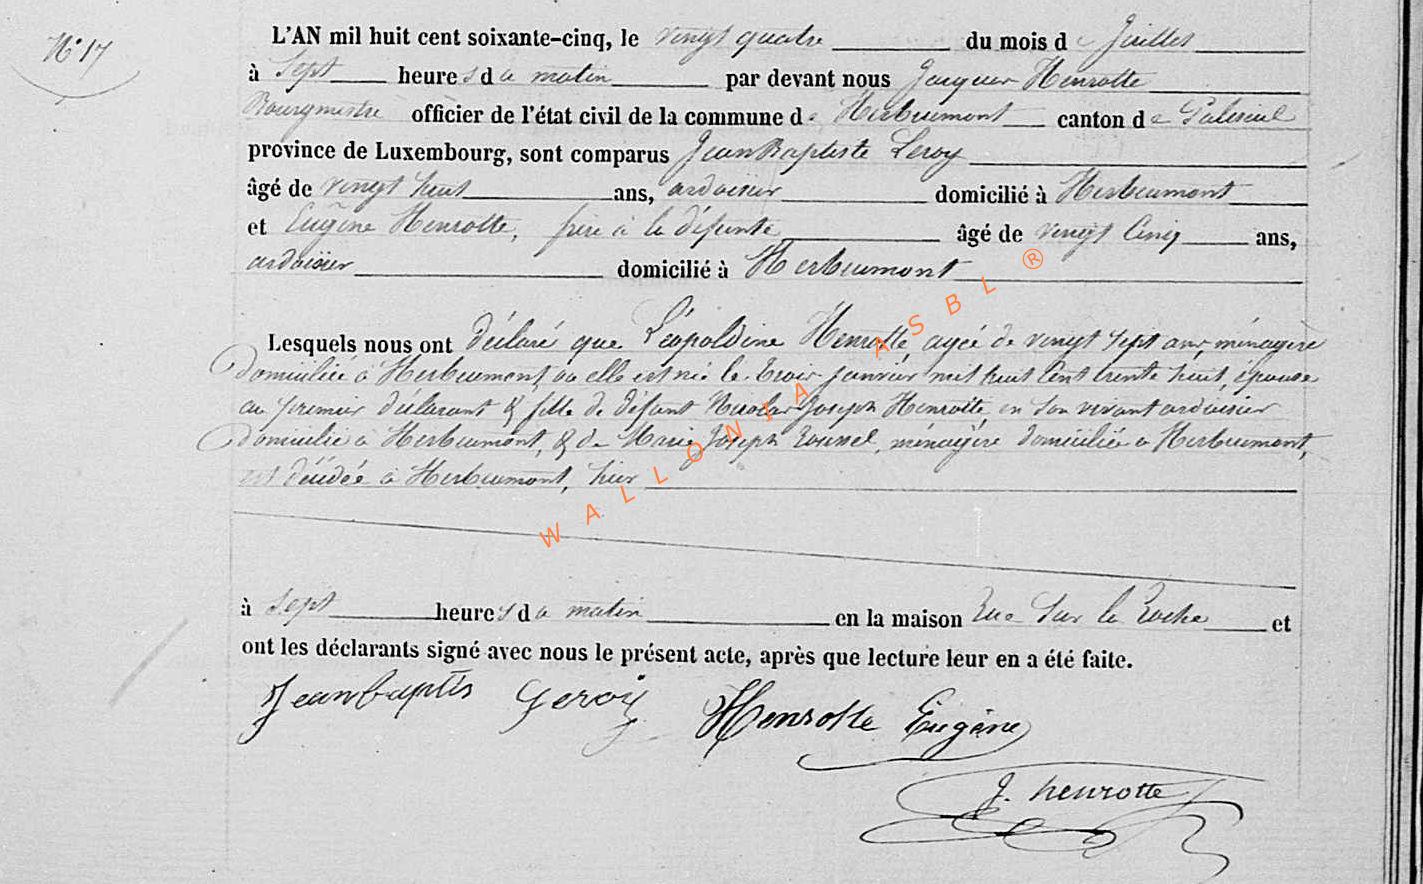 N° 17
L'AN mil huit cent soixante-cinq, le vingt quatre du mois de Juillet
à Sept heures du matin par devant nous Jacques Henrotte
Bourgmestre officier de l'état civil de la commune de Herbeumont canton de Paliseul
province de Luxembourg, sont comparus Jean Baptiste Leroy
âgé de vingt huit ans, ardoisier domicilié à Herbeumont
et Eugène Henrotte, frère à la défunte âgé de vingt Cinq ans,
ardoisier domicilié à Herbeumont
Lesquels nous ont déclaré que Léopoldine Henrotte, agée de vingt sept ans, ménagère
domiciliée à Herbeumont, où elle est née le trois janvier mil huit Cent trente huit, épouse
au premier déclarant & fille de défunt Nicolas Joseph Henrotte, en son vivant ardoisier
domicilié à Herbeumont, & de Marie Joseph Roussel, ménagère domiciliée à Herbeumont,
est décédée à Herbeumont, hier
à Sept heures du matin en la maison Rue Sur la Roche et
ont les déclarants signé avec nous le présent acte, après que lecture leur en a été faite.
Jean baptis Leroy Henrotte Eugène
J. henrotte
WALLONIA ASBL ®